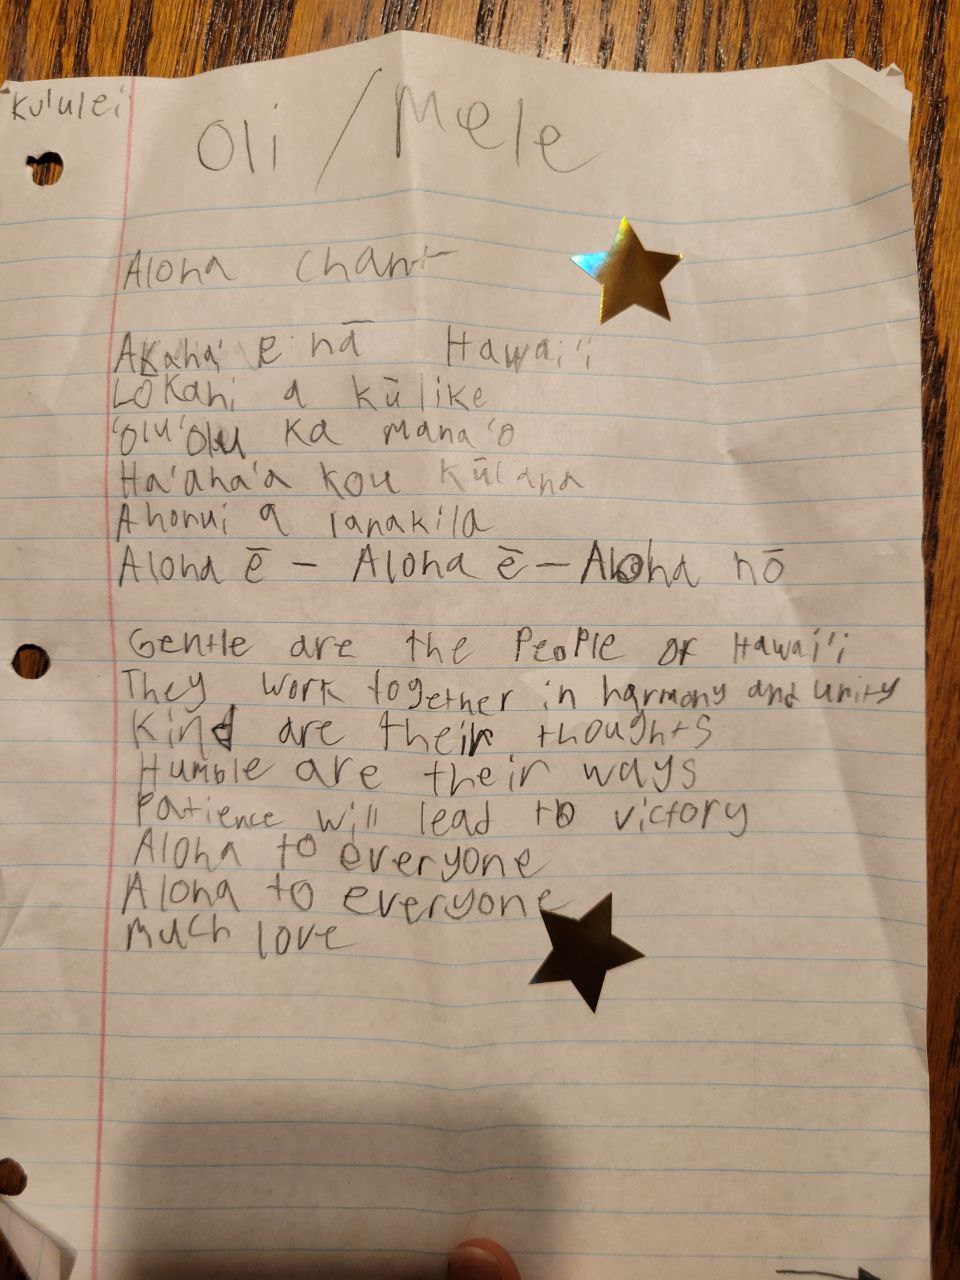 Ku'ulei
Oli / Mele
Aloha chant
Akahai e nā Hawai'i
Lōkahi a kūlike
'olu'olu ka mana'o
Ha'aha'a kou kūlana
Ahonui a lanakila
Aloha ē - Aloha ē - Aloha nō
Gentle are the People of Hawai'i
They work together in harmony and unity
Kind are their thoughts
Humble are their ways
Patience will lead to victory
Aloha to everyone
Aloha to everyone
much love